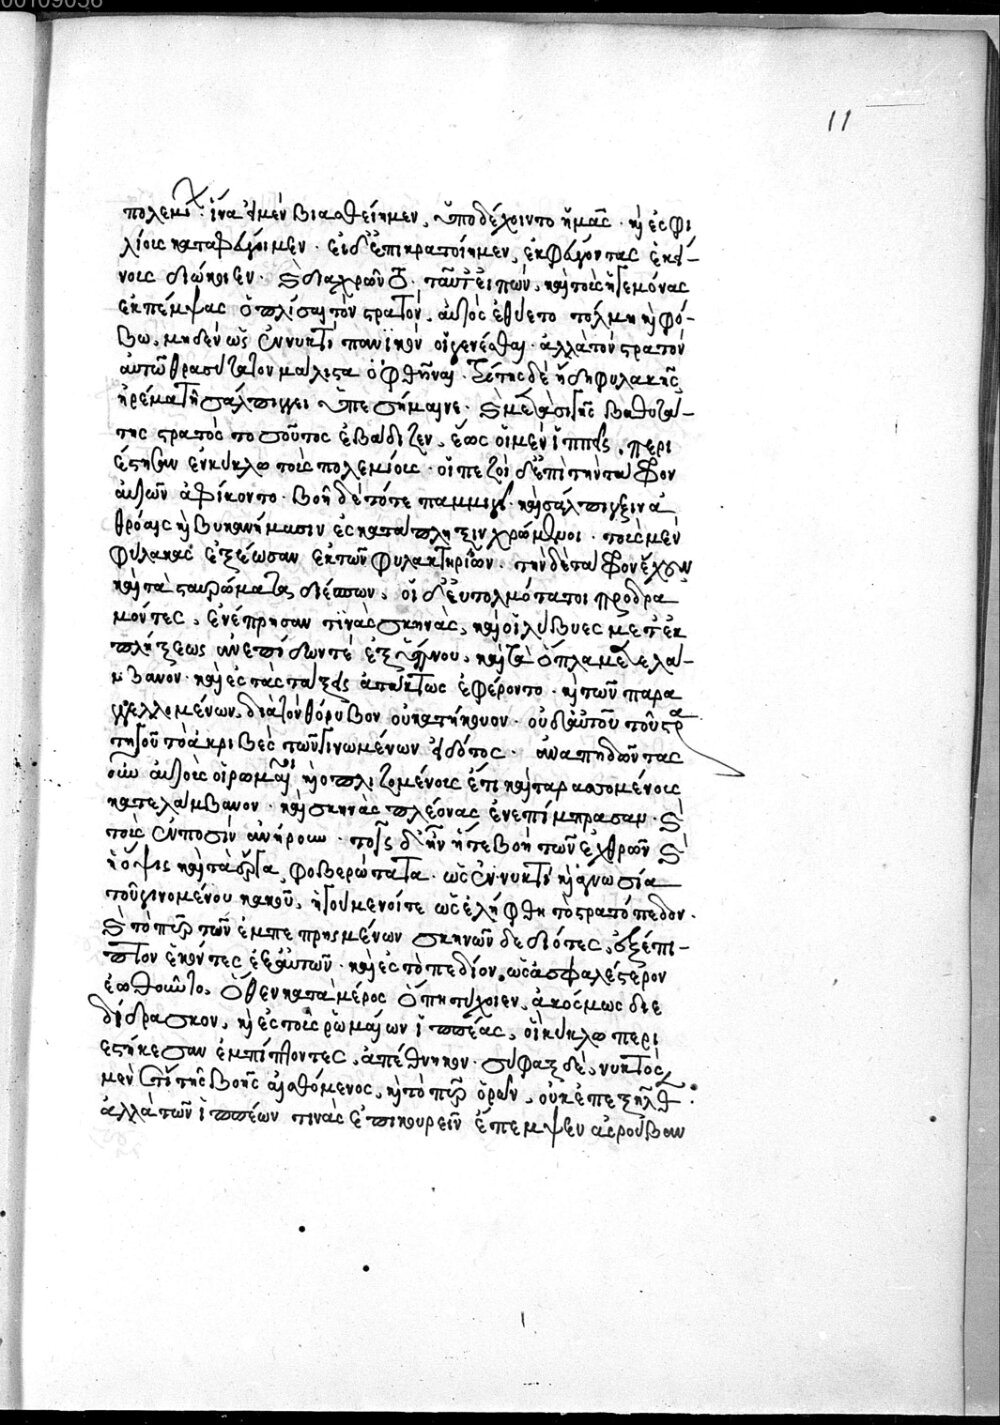 πολεμι · ἵνα εἰ μὲν βιασθείημεν, ὑποδέχοιντο ἡμᾶς · καὶ ἐς φι
λίους καταφύγοιμεν · εἰ δ' ἐπικρατοίημεν, ἐκφυγόντας ἐκεί-
νοις διώκοιεν · καὶ διαχρῶντο · ταῦτ' εἰπὼν, καὶ τοὺς ἡγεμόνας
ἐκπέμψας ὁπλίσαι τὸν στρατόν, αὐτὸς ἐθύετο τόλμῃ καὶ φό-
βω, μηδὲν ὡς ἐν νυκτὶ πανικόν οἱ γενέσθαι · ἀλλὰ τὸν στρατὸν
αὐτῶ θρασύτατον μάλιστα ὀφθῆναι · τρίτης δὲ ἤδη φυλακῆς
ἠρέμα τῇ σάλπιγγι ὑπεσήμαινε · καὶ μετὰ σιγῆς βαθυτά-
της στρατὸς τοσοῦτος ἐβάδιζεν, ἕως οἱ μὲν ἱππεῖς, περι
έστησαν ἐν κύκλω τοῖς πολεμίοις · οἱ πεζοὶ δ' ἐπὶ τὴν τάφρον
αὐτῶν ἀφίκοντο · βοῇ δὲ τότε παμμιγεῖ · καὶ σάλπιγξιν ἀ
θρόαις καὶ βυκανήμασιν ἐς κατάπληξιν χρώμενοι · τοὺς μὲν
φύλακας ἐξέωσαν ἐκ τῶν φυλακτηρίων · τὴν δὲ τάφρον ἔχουν
καὶ τὰ σταυρώματα διέσπων. οἱ δ' εὐτολμότατοι προδρα
μόντες, ἐνέπρησαν τινὰς σκηνάς, καὶ οἱ λίβυες μετ' ἐκ
πλήξεως ἀνεπήδων τὲ ἐξ ὕπνου, καὶ τὰ ὅπλα μετελά-
μβανον · καὶ ἐς τὰς τάξεις ἀτάκτως ἐφέροντο · καὶ τῶν παρα
γγελλομένων, διὰ τὸν θόρυβον οὐ κατήκουον · οὐδ' αὐτοῦ τοῦ στρα
τηγοῦ τὸ ἀκριβὲς τῶν γινωμένων εἰδότος · ἀναπηδῶντας
οὖν αὐτοὺς οἱ ρωμαῖοι καὶ ὁπλιζομένους ἔτι καὶ ταρασσομένους
κατελάμβανον · καὶ σκηνὰς πλέονας ἐνεπίμπρασαν · καὶ
τοὺς ἐν ποσὶν ἀνήρουν · τοῖς δ' ἦν ἥ τε βοὴ τῶν ἐχθρῶν καὶ
ἡ ὄψις καὶ τὰ ἔργα, φοβερώτατα · ὡς ἐν νυκτὶ καὶ ἀγνωσία
τοῦ γινομένου κακοῦ, ἡγούμενοί τε ὡς ἐλήφθη τὸ στρατόπεδον ·
καὶ τὸ πῦρ τῶν ἐμπεπρησμένων σκηνῶν δεδιότες, ἐξέπι-
πτον ἑκόντες ἐξ αὐτῶν · καὶ ἐς τὸ πεδίον, ὡς ἀσφαλέστερον
ἐωθοῦντο. ὅθεν κατὰ μέρος ὅπη τύχοιεν, ἀκόσμως διε
δίδρασκον, καὶ ἐς τοὺς ρωμαίων ἱππέας, οἳ κύκλω περι
εστήκεσαν ἐμπίπτοντες, ἀπέθνησκον · σύφαξ δὲ, νυκτὸς
μὲν ἔτι τῆς βοῆς αἰσθόμενος, καὶ τὸ πῦρ ὁρῶν, οὐκ ἐπεξῆλθεν :
ἀλλὰ τῶν ἱππέων τινὰς ἐπικουρεῖν ἔπεμψεν ἀσρούβαν
11